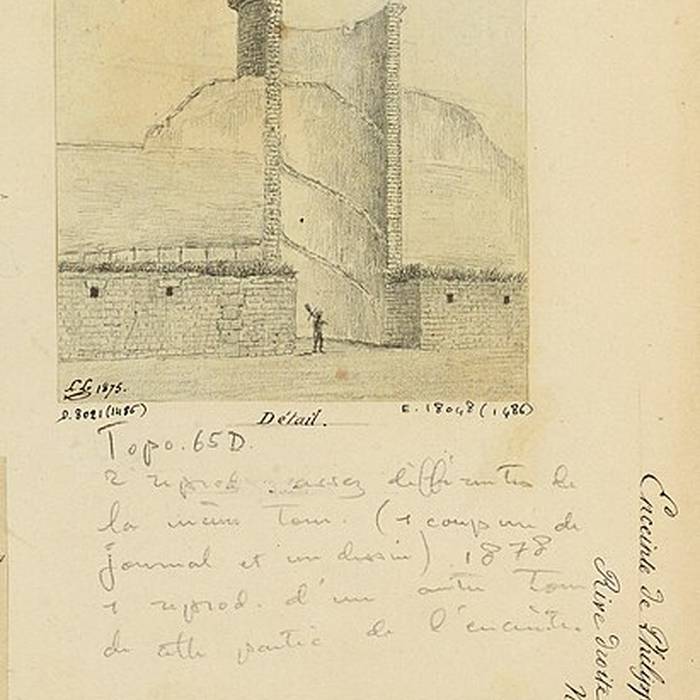 LL. 1875.
D. 8021 (1486)
Détail.
E. 18048 (1486)
Topo. 65 D.
2 reprod. assez différentes de
la même Tour. (1 coupure de
journal et un dessin) 1878
1 reprod. d'une autre Tour
de cette partie de l'enceinte.
Enceinte de Philipp
Rive droite